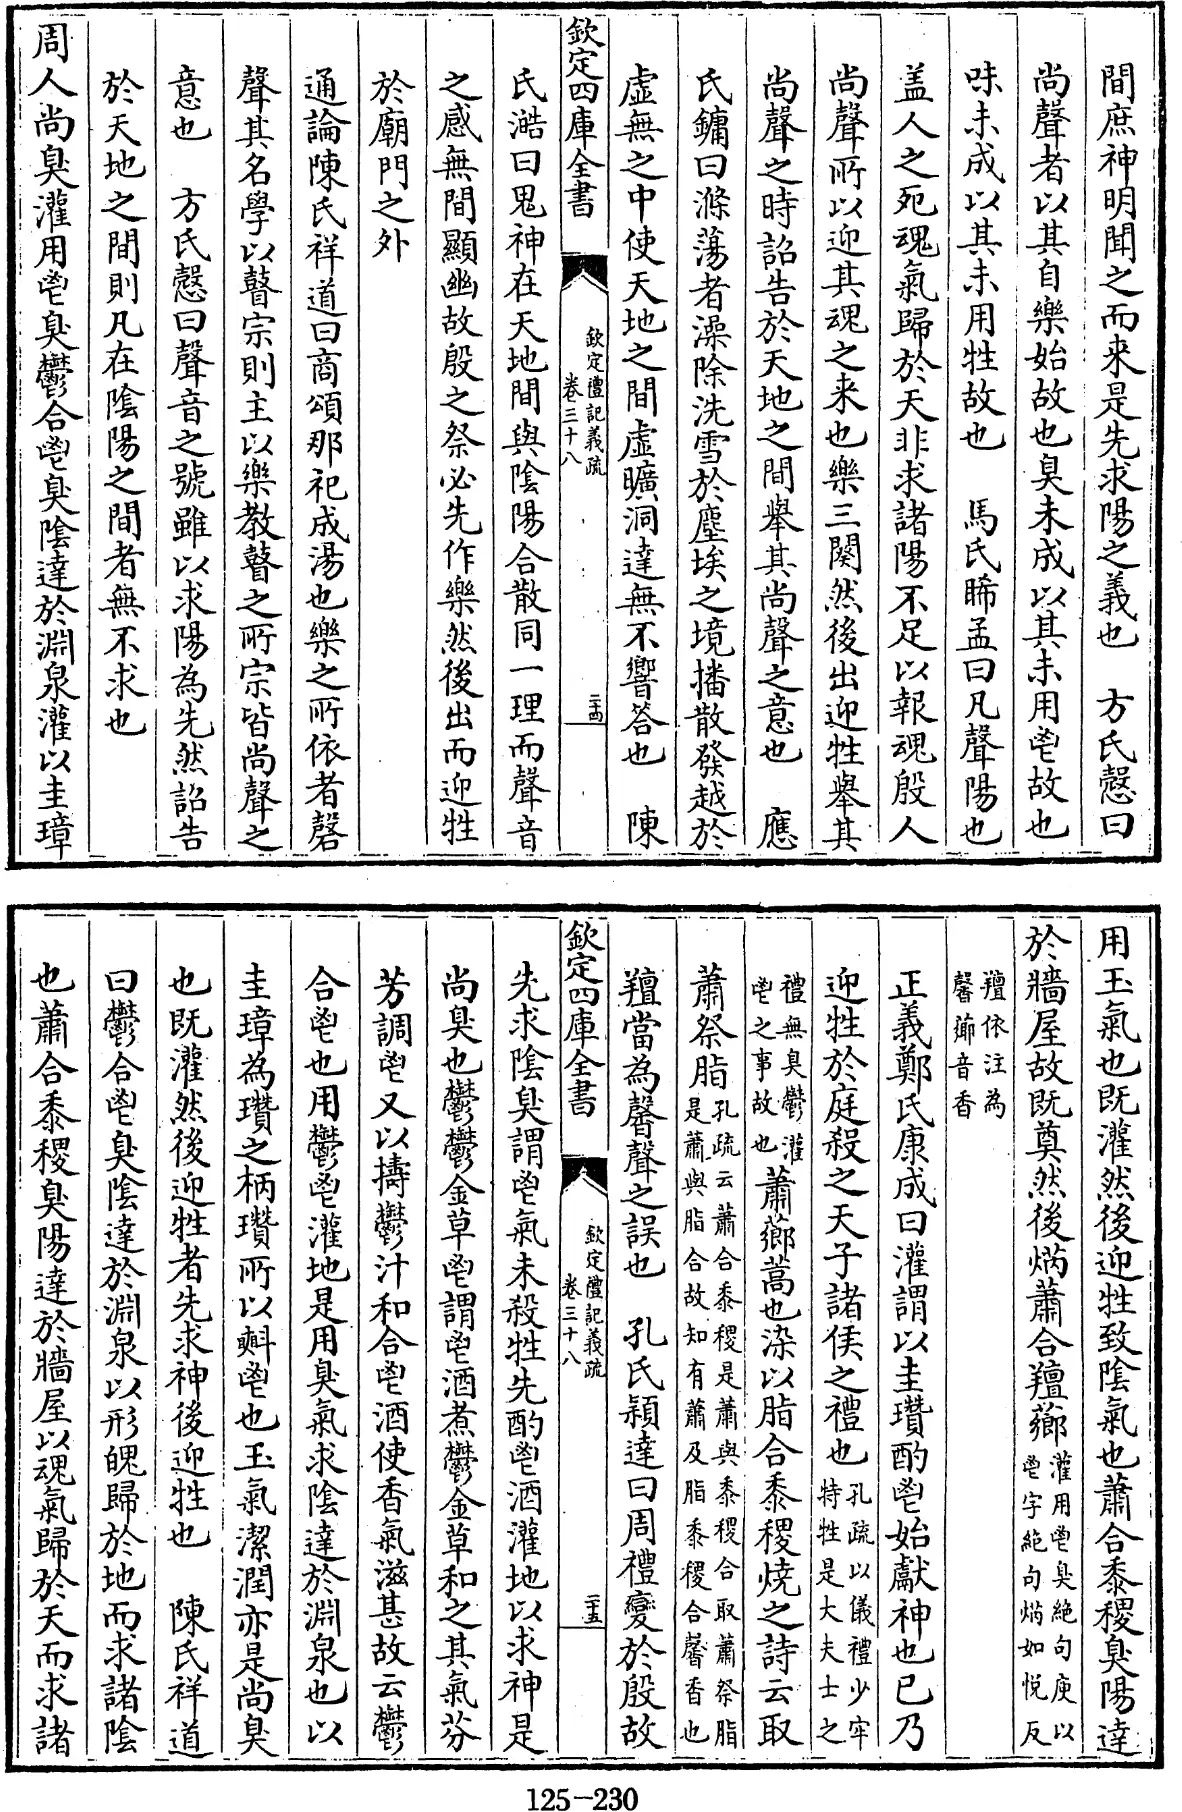 間庶神明聞之而來是先求陽之義也　方氏慤曰
尚聲者以其自樂始故也臭未成以其未用鬯故也
味未成以其未用牲故也　馬氏晞孟曰凡聲陽也
盖人之死魂氣歸於天非求諸陽不足以報魂殷人
尚聲所以迎其魂之来也樂三闋然後出迎牲舉其
尚聲之時詔告於天地之間舉其尚聲之意也　應
氏鏞曰滌蕩者澡除洗雪於塵埃之境播散發越於
虛無之中使天地之間虛曠洞達無不響答也　陳
欽定四庫全書
欽定禮記義疏
卷三十八
二十四
氏澔曰鬼神在天地間與陰陽合散同一理而聲音
之感無間顯幽故殷之祭必先作樂然後出而迎牲
於廟門之外
通論陳氏祥道曰商頌那祀成湯也樂之所依者磬
聲其名學以瞽宗則主以樂教瞽之所宗皆尚聲之
意也　方氏慤曰聲音之號雖以求陽為先然詔告
於天地之間則凡在陰陽之間者無不求也
周人尚臭灌用鬯臭鬱合鬯臭陰達於淵泉灌以圭璋
用玉氣也既灌然後迎牲致陰氣也蕭合黍稷臭陽達
於牆屋故既奠然後焫蕭合羶薌灌用鬯臭絶句庾以
鬯字絶句焫如悅反
羶依注為
馨薌音香
正義鄭氏康成曰灌謂以圭瓚酌鬯始獻神也已乃
迎牲於庭殺之天子諸侯之禮也孔疏以儀禮少牢
特牲是大夫士之
禮無臭鬱灌
鬯之事故也蕭薌蒿也染以脂合黍稷燒之詩云取
蕭祭脂孔疏云蕭合黍稷是蕭與黍稷合取蕭祭脂
是蕭與脂合故知有蕭及脂黍稷合馨香也
羶當為馨聲之誤也　孔氏穎達曰周禮變於殷故
欽定四庫全書
欽定禮記義疏
卷三十八
二十五
先求陰臭謂鬯氣未殺牲先酌鬯酒灌地以求神是
尚臭也鬱鬱金草鬯謂鬯酒煮鬱金草和之其氣芬
芳調鬯又以擣鬱汁和合鬯酒使香氣滋甚故云鬱
合鬯也用鬱鬯灌地是用臭氣求陰達於淵泉也以
圭璋為瓚之柄瓚所以㪺鬯也玉氣潔潤亦是尚臭
也既灌然後迎牲者先求神後迎牲也　陳氏祥道
曰鬱合鬯臭陰達於淵泉以形魄歸於地而求諸陰
也蕭合黍稷臭陽達於牆屋以魂氣歸於天而求諸
125-230